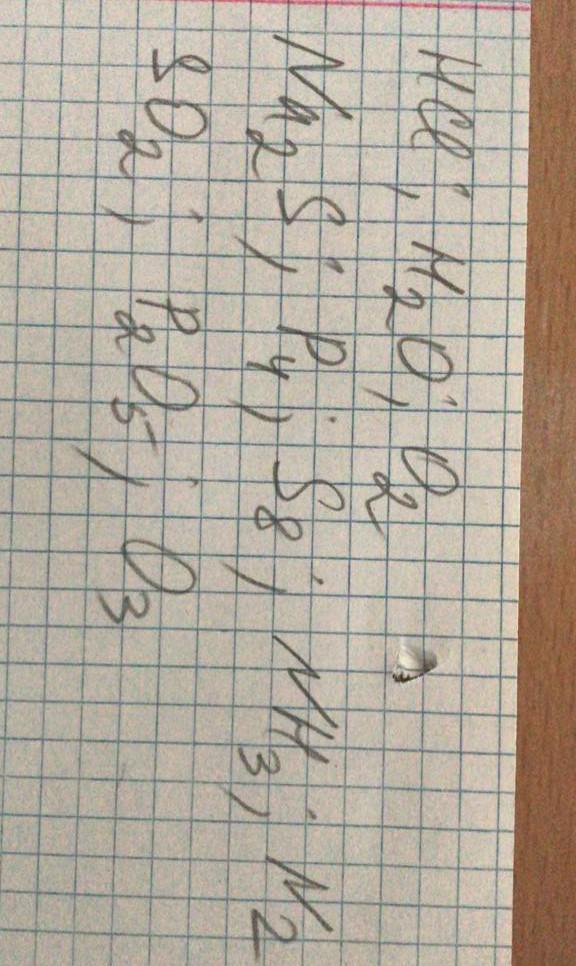 HCl; H₂O; O₂
Na₂S; P₄; S₈; NH₃; N₂
SO₂; P₂O₅; O₃